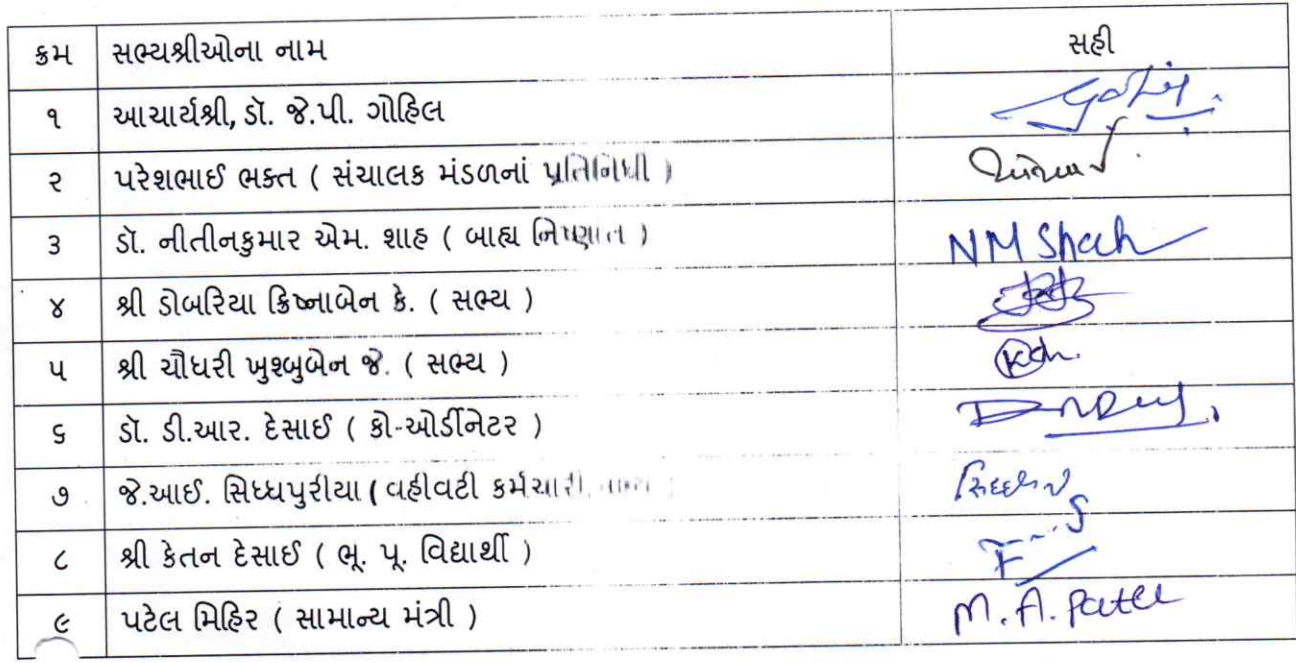 ક્રમ સભ્યશ્રીઓના નામ સહી
૧ આચાર્યશ્રી, ડૉ. જે.પી. ગોહિલ
૨ પરેશભાઈ ભક્ત ( સંચાલક મંડળનાં પ્રતિનિધી )
૩ ડૉ. નીતીનકુમાર એમ. શાહ ( બાહ્ય નિષ્ણાત ) NM Shah
૪ શ્રી ડોબરિયા ક્રિષ્નાબેન કે. ( સભ્ય )
૫ શ્રી ચૌધરી ખુશ્બુબેન જે. ( સભ્ય )
૬ ડૉ. ડી.આર. દેસાઈ ( કો-ઓર્ડીનેટર )
૭ જે.આઈ. સિધ્ધપુરીયા ( વહીવટી કર્મચારી
૮ શ્રી કેતન દેસાઈ ( ભૂ. પૂ. વિદ્યાર્થી )
૯ પટેલ મિહિર ( સામાન્ય મંત્રી ) M. A. Patel